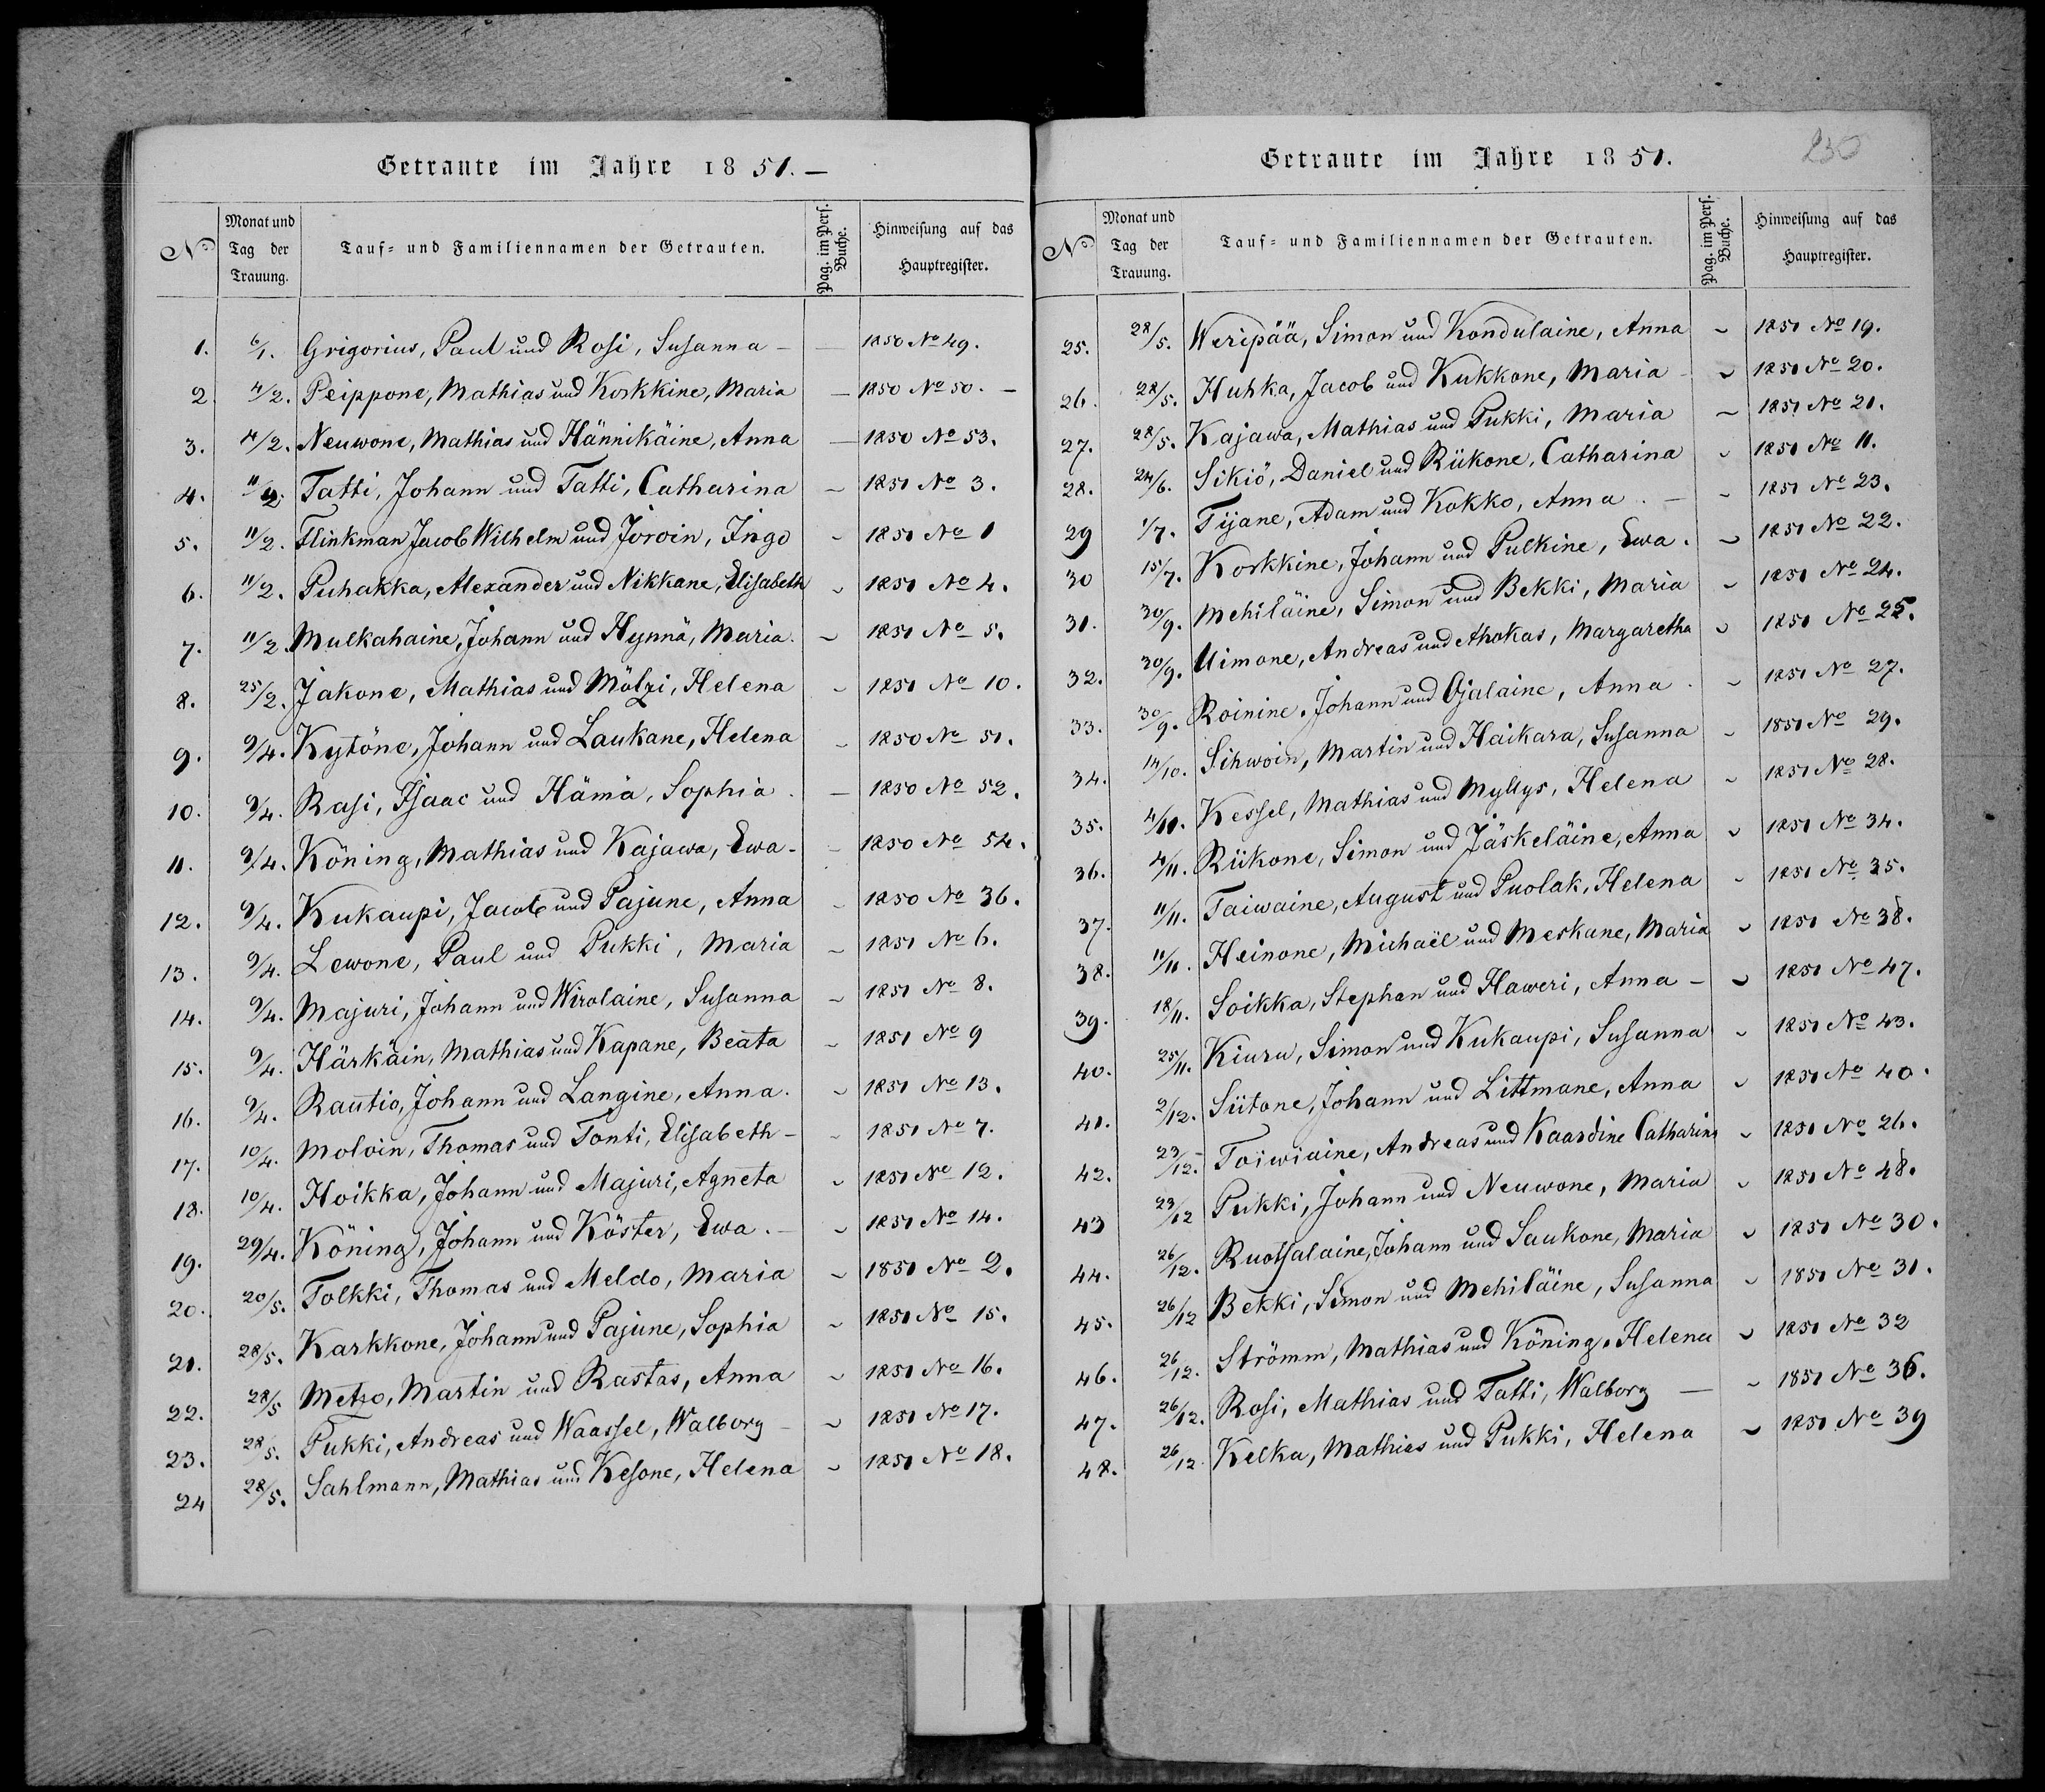 Getraute im Jahre 1851. —
№ Monat und Tag der Trauung. Tauf- und Familiennamen der Getrauten. Pag. im Pers. Buche. Hinweisung auf das Hauptregister.
1. 6/1. Grigorius, Paul und Rosi, Susanna — — 1850 No 49.
2 4/2. Peippone, Mathias und Korkkine, Maria — 1850 No 50. —
3. 4/2. Neuwone, Mathias und Hännikäine, Anna — 1850 No 53.
4. 11/2. Tatti, Johann und Tatti, Catharina — 1851 No 3.
5. 11/2. Flinkman Jacob Wilhelm und Joroin, Ingo - 1851 No 1
6. 11/2. Puhakka, Alexander und Nikkane, Elisabeth - 1851 No 4.
7. 11/2. Mulkahaine, Johann und Hynnä, Maria. - 1851 No 5.
8. 25/2. Jakone, Mathias und Mölzi, Helena - 1851 No 10.
9. 9/4. Kytöne, Johann und Laukane, Helena - 1850 No 51.
10. 9/4. Rasi, Isaac und Hämä, Sophia. - 1850 No 52.
11. 9/4. Köning, Mathias und Kajawa, Ewa. - 1850 No 54.
12. 9/4. Kukaupi, Jacob und Pajune, Anna - 1850 No 36.
13. 9/4. Lewone, Paul und Pukki, Maria - 1851 No 6.
14. 9/4. Majuri, Johann und Wirolaine, Susanna - 1851 No 8.
15. 9/4. Härkäin, Mathias und Kapane, Beata - 1851 No 9
16. 9/4. Rautio, Johann und Langine, Anna. - 1851 No 13.
17. 10/4. Moloin, Thomas und Tonti, Elisabeth - - 1851 No 7.
18. 10/4. Hoikka, Johann und Majuri, Agneta - 1851 No 12.
19. 29/4. Köning, Johann und Köster, Ewa. - - 1851 No 14.
20. 20/5. Tolkki, Thomas und Meldo, Maria - 1851 No 2.
21. 28/5. Karkkone, Johann und Pajune, Sophia - 1851 No 15.
22. 28/5 Metzo, Martin und Rastas, Anna - 1851 No 16.
23. 28/5. Pukki, Andreas und Waassel, Walborg - - 1851 No 17.
24 28/5. Sahlmann, Mathias und Kesone, Helena - 1851 No 18.
Getraute im Jahre 1851.
230
№ Monat und Tag der Trauung. Tauf- und Familiennamen der Getrauten. Pag. im Pers. Buche. Hinweisung auf das Hauptregister.
25. 28/5. Weripää, Simon und Kondulaine, Anna - 1851 No 19.
26. 28/5. Huhka, Jacob und Kukkone, Maria - - 1851 No 20.
27. 28/5. Kajawa, Mathias und Pukki, Maria - 1851 No 21.
28. 24/6. Sikiö, Daniel und Rükone, Catharina - 1851 No 11.
29 1/7. Tijane, Adam und Kokko, Anna. - - 1851 No 23.
30 15/7. Korkkine, Johann und Pulkine, Ewa. - 1851 No 22.
31. 30/9. Mehiläine, Simon und Bekki, Maria - 1851 No 24.
32. 30/9. Uimone, Andreas und Ahokas, Margaretha - 1851 No 25.
33. 30/9. Roinine, Johann und Ojalaine, Anna. - 1851 No 27.
34. 14/10. Sihwoin, Martin und Haikara, Susanna - 1851 No 29.
35. 4/11. Kessel, Mathias und Myllys, Helena - 1851 No 28.
36. 4/11. Rükone, Simon und Jäskeläine, Anna - 1851 No 34.
37. 11/11. Taiwaine, August und Puolak, Helena - 1851 No 35.
38. 11/11. Heinone, Michaël und Meskane, Maria - 1851 No 38.
39. 18/11. Soikka, Stephan und Haweri, Anna - - 1851 No 47.
40. 25/11. Kiuru, Simon und Kukaupi, Susanna - 1851 No 43.
41. 2/12. Sütone, Johann und Littmane, Anna - 1851 No 40.
42. 23/12. Toiwiaine, Andreas und Kaardine Catharina - 1851 No 26.
43 23/12 Pukki, Johann und Neuwone, Maria - 1851 No 48.
44. 26/12. Ruotsalaine, Johann und Saukone, Maria - 1851 No 30.
45. 26/12 Bekki, Simon und Mehiläine, Susanna - 1851 No 31.
46. 26/12. Strömm, Mathias und Köning, Helena - 1851 No 32
47. 26/12. Rosi, Mathias und Tatti, Walborg — - 1851 No 36.
48. 26/12 Kelka, Mathias und Pukki, Helena - 1851 No 39